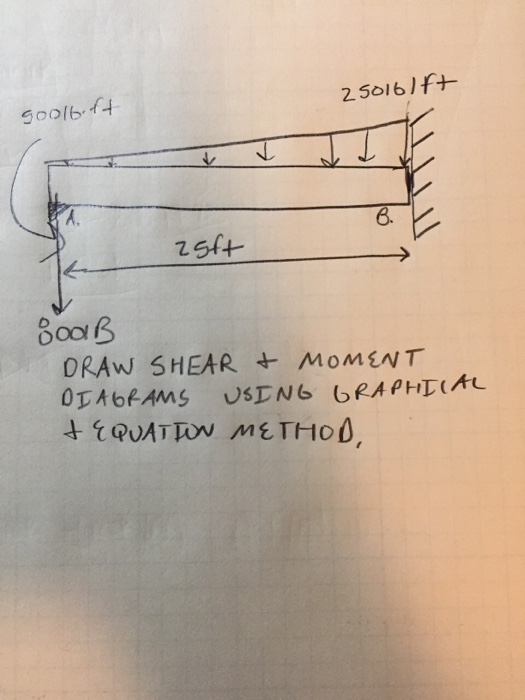 250lb/ft
900lb.ft
A.
B.
25ft
800lB
DRAW SHEAR + MOMENT
DIAGRAMS USING GRAPHICAL
+ EQUATION METHOD,